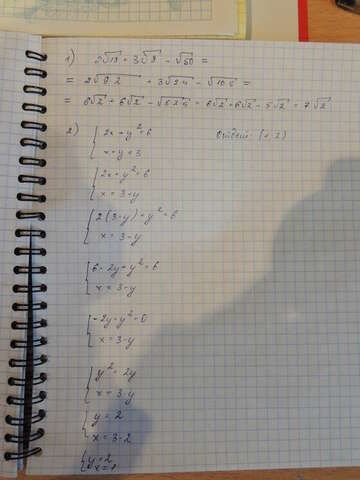 1) 2√18 + 3√8 - √50 =
= 2√9·2 + 3√2·4 - √10·5 =
= 6√2 + 6√2 - √5·2·5 = 6√2 + 6√2 - 5√2 = 7√2
2) { 2x + y² = 6 Ответ: (1; 2)
x + y = 3
{ 2x + y² = 6
x = 3 - y
{ 2(3-y) + y² = 6
x = 3 - y
{ 6 - 2y + y² = 6
x = 3 - y
{ -2y + y² = 0
x = 3 - y
{ y² = 2y
x = 3 - y
{ y = 2
x = 3 - 2
{ y = 2
x = 1